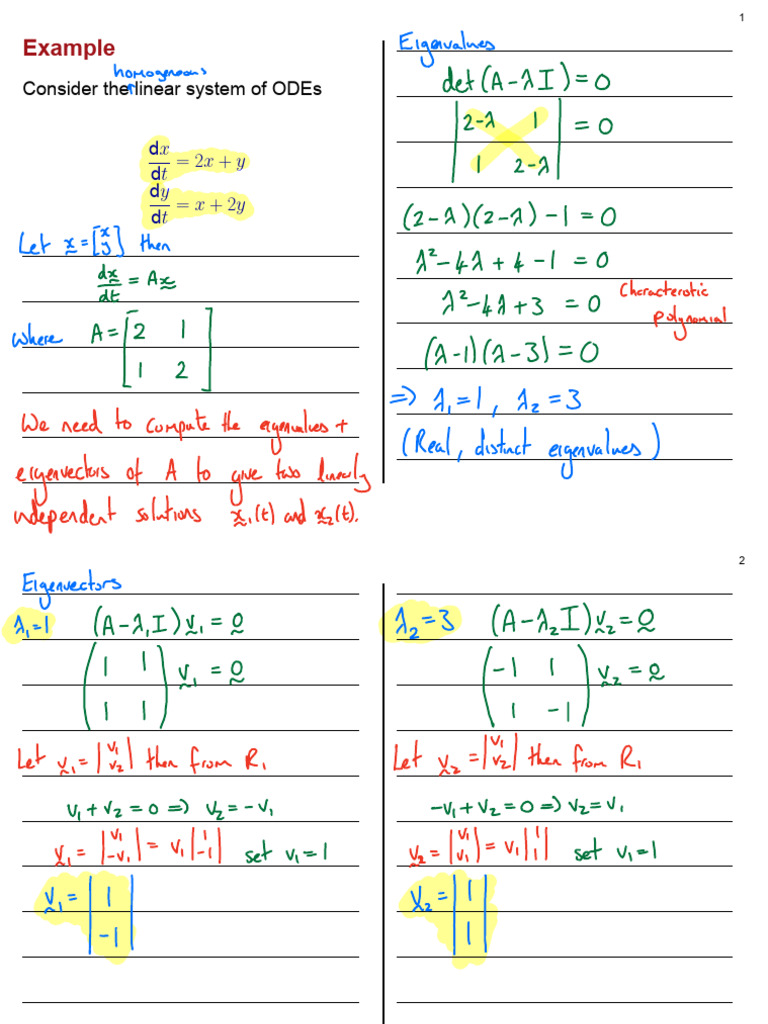 1
Example
homogeneous
Consider the linear system of ODEs
dx/dt = 2x + y
dy/dt = x + 2y
Let x = [x y] then
dx/dt = Ax
where A = [2 1
1 2]
We need to compute the eigenvalues +
eigenvectors of A to give two linearly
independent solutions x₁(t) and x₂(t).
Eigenvalues
det(A-λI) = 0
|2-λ 1| = 0
|1 2-λ|
(2-λ)(2-λ) - 1 = 0
λ² - 4λ + 4 - 1 = 0
λ² - 4λ + 3 = 0 Characterotic
polynomial
(λ-1)(λ-3) = 0
⇒ λ₁ = 1, λ₂ = 3
(Real, distinct eigenvalues)
2
Eigenvectors
λ₁ = 1 (A-λ₁I)v₁ = 0
(1 1) v₁ = 0
(1 1)
Let v₁ = |v₁ v₂| then from R₁
v₁ + v₂ = 0 ⇒ v₂ = -v₁
v₁ = |v₁ -v₁| = v₁|1 -1| set v₁ = 1
v₁ = |1|
|-1|
λ₂ = 3 (A-λ₂I)v₂ = 0
(-1 1) v₂ = 0
(1 -1)
Let v₂ = |v₁ v₂| then from R₁
-v₁ + v₂ = 0 ⇒ v₂ = v₁
v₂ = |v₁ v₁| = v₁|1 1| set v₁ = 1
v₂ = |1|
|1|